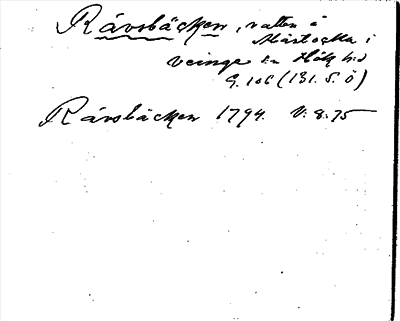 Rävsbäcken, vatten å
Mästocka i
Veinge sn Hök hd
G. 106 (131. S. Ö)
Rävsbäcken 1794. V: 8: 75